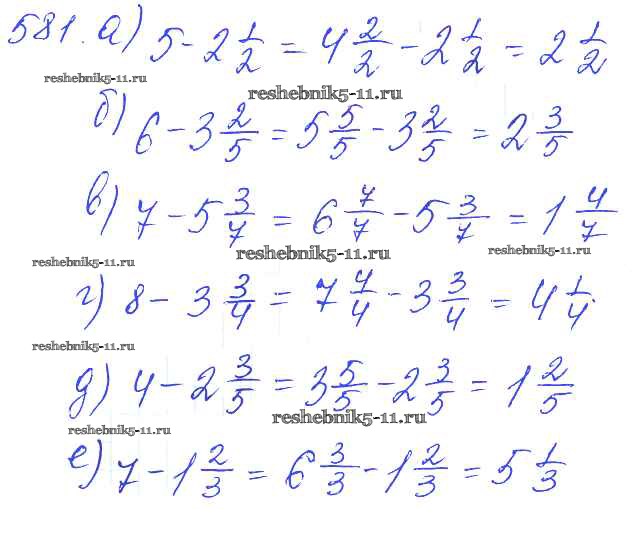 581. а) 5 - 2 1/2 = 4 2/2 - 2 1/2 = 2 1/2
reshebnik5-11.ru
reshebnik5-11.ru
б) 6 - 3 2/5 = 5 5/5 - 3 2/5 = 2 3/5
в) 7 - 5 3/7 = 6 7/7 - 5 3/7 = 1 4/7
reshebnik5-11.ru
reshebnik5-11.ru
reshebnik5-11.ru
г) 8 - 3 3/4 = 7 4/4 - 3 3/4 = 4 1/4.
reshebnik5-11.ru
д) 4 - 2 3/5 = 3 5/5 - 2 3/5 = 1 2/5
reshebnik5-11.ru
reshebnik5-11.ru
е) 7 - 1 2/3 = 6 3/3 - 1 2/3 = 5 1/3